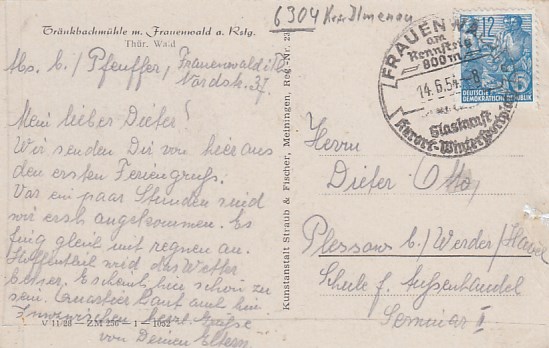 Tränkbachmühle m. Frauenwald a. Rstg.
Thür. Wald
6304 Ilmenau
Abs. b/ Pfeuffer, Frauenwald
Nordstr. 37
Mein lieber Dieter!
Wir senden Dir von hier aus
den ersten Feriengruß.
Vor ein paar Stunden sind
wir erst angekommen. Es
fing gleich mit regnen an.
Hoffentlich wird das Wetter
besser. Es scheint hier schön zu
sein.
Inzwischen herzl. Grüße
von Deinen Eltern.
V 11-28 — ZM 256 — 1 — 1052
Kunstanstalt Straub & Fischer, Meiningen, Reg.-Nr.
FRAUENWALD
am
Rennsteig
800m
14.6.54.-8
Glaskunst
Kurort-Wintersportplatz
12
DEUTSCHE
DEMOKRATISCHE REPUBLIK
Herrn
Dieter Otto,
Plessow b/ Werder/Havel
Schule f. Aussenhandel
Seminar I